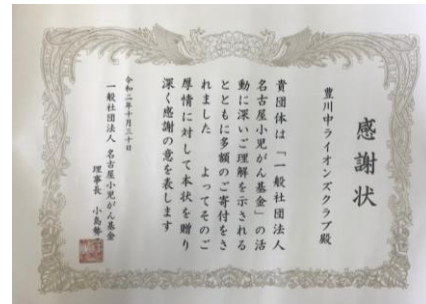 感謝状
豊川中ライオンズクラブ殿
貴団体は「一般社団法人
名古屋小児がん基金」の活
動に深いご理解を示される
とともに多額のご寄付をさ
れました よってそのご
厚情に対して本状を贈り
深く感謝の意を表します
令和二年十月三十日
一般社団法人 名古屋小児がん基金
理事長 小島勢二